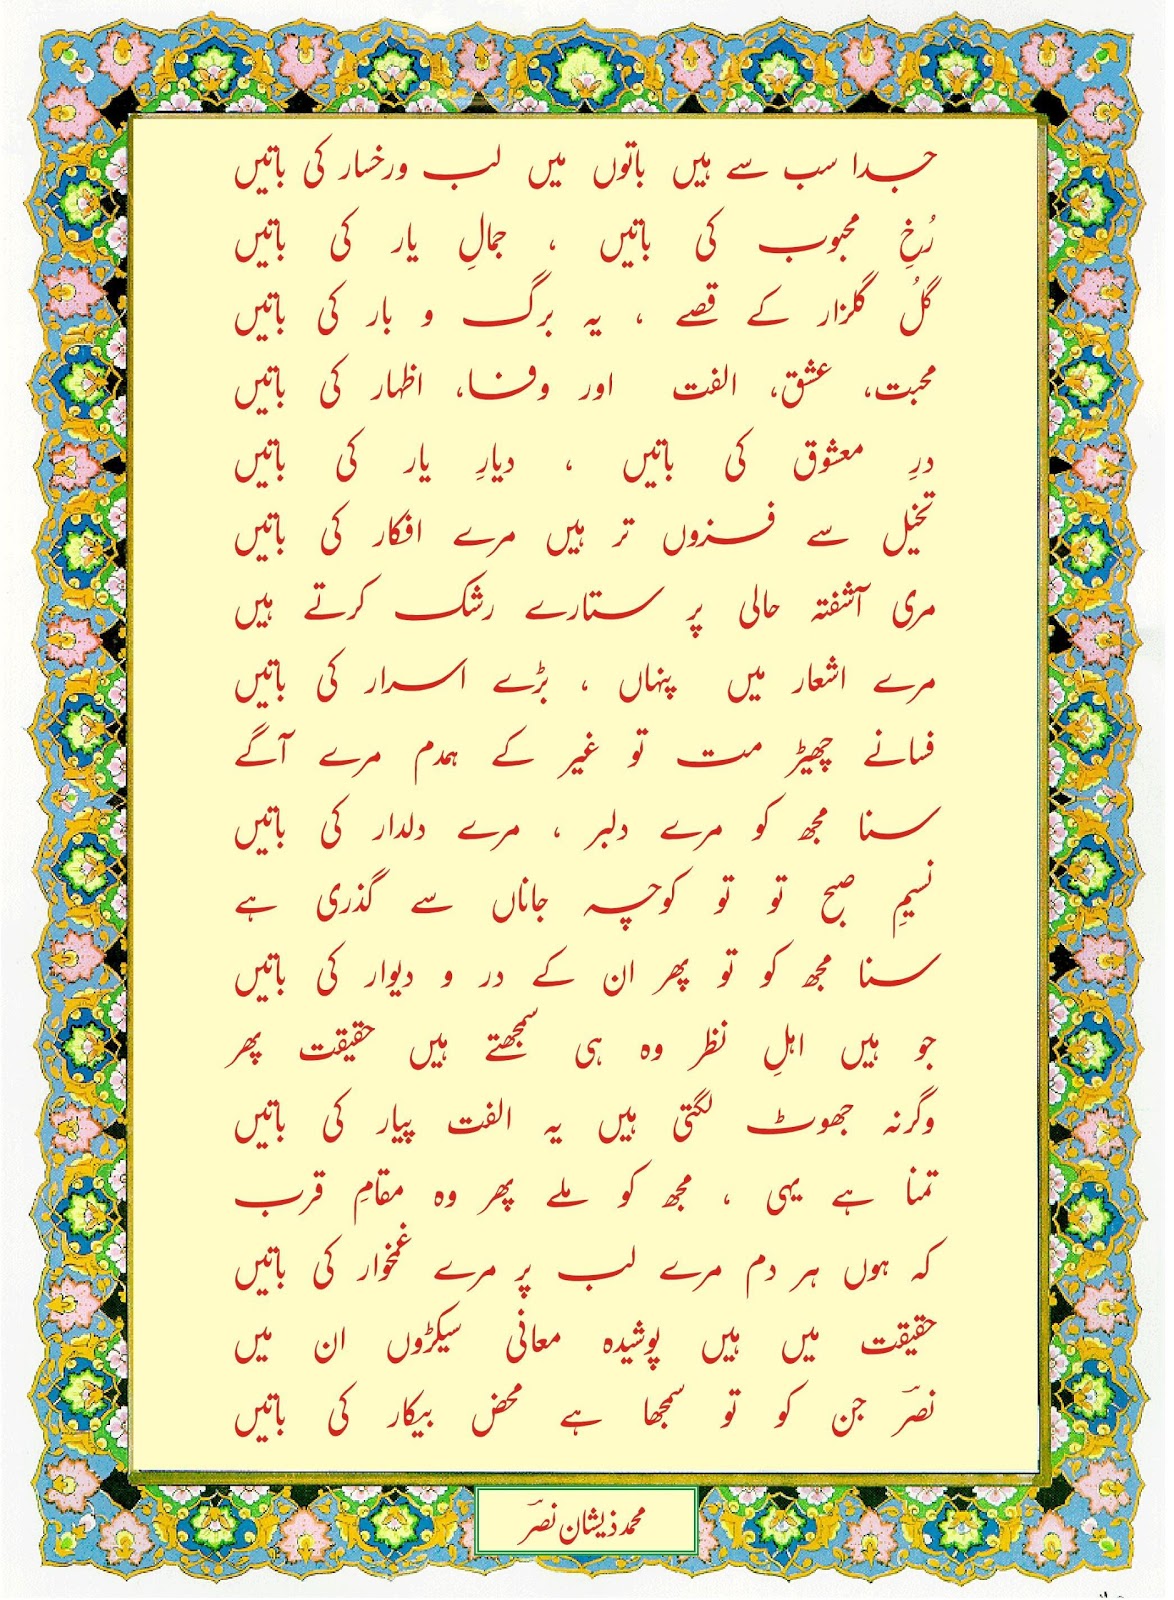 جدا سب سے ہیں باتوں میں لب ورخسار کی باتیں
رُخِ محبوب کی باتیں ، جمالِ یار کی باتیں
گلُ گلزار کے قصے ، یہ برگ و بار کی باتیں
محبت، عشق، الفت اور وفا، اظہار کی باتیں
درِ معشوق کی باتیں ، دیارِ یار کی باتیں
تخیل سے فزوں تر ہیں مرے افکار کی باتیں
مری آشفتہ حالی پر ستارے رشک کرتے ہیں
مرے اشعار میں پنہاں ، بڑے اسرار کی باتیں
فسانے چھیڑ مت تو غیر کے ہمدم مرے آگے
سنا مجھ کو مرے دلبر ، مرے دلدار کی باتیں
نسیمِ صبح تو تو کوچہ جاناں سے گذری ہے
سنا مجھ کو تو پھر ان کے در و دیوار کی باتیں
جو ہیں اہلِ نظر وہ ہی سمجھتے ہیں حقیقت پھر
وگرنہ جھوٹ لگتی ہیں یہ الفت پیار کی باتیں
تمنا ہے یہی ، مجھ کو ملے پھر وہ مقامِ قرب
کہ ہوں ہر دم مرے لب پر مرے غمخوار کی باتیں
حقیقت میں ہیں پوشیدہ معانی سیکڑوں ان میں
نصرؔ جن کو تو سمجھا ہے محض بیکار کی باتیں
محمد ذیشان نصرؔ